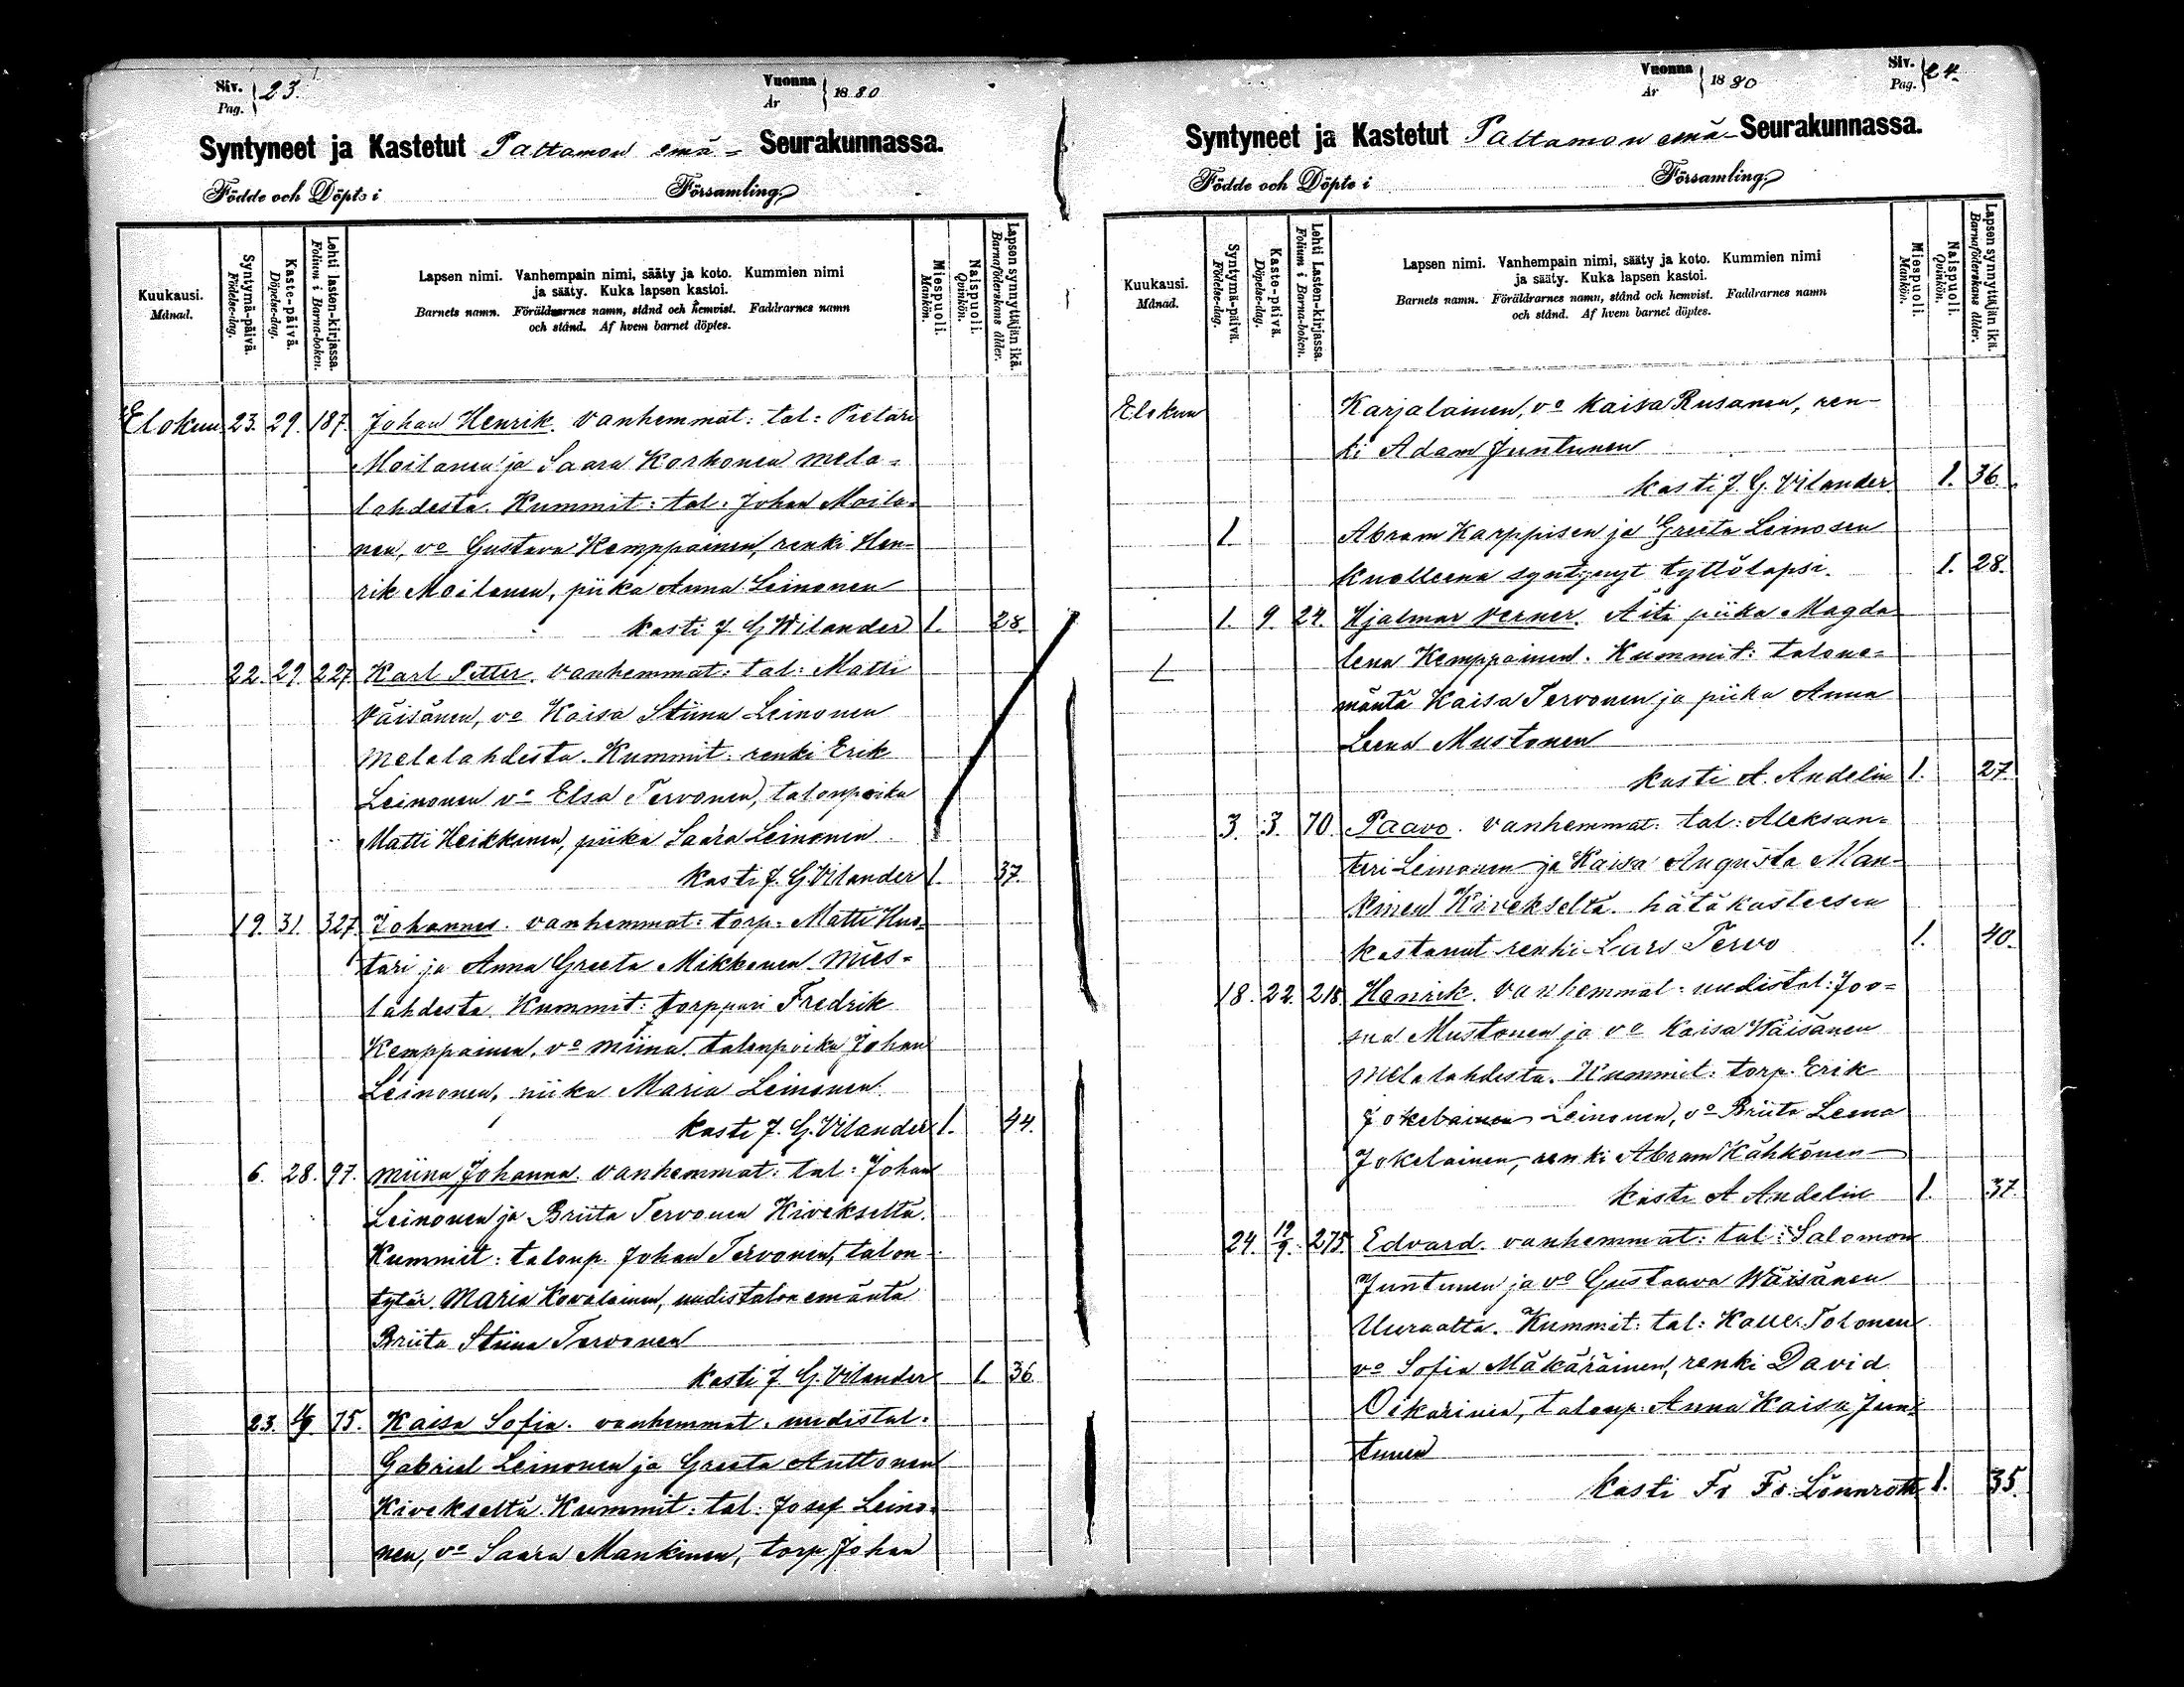 Siv. Pag. 23.
Vuonna År 1880
Syntyneet ja Kastetut Paltamon emä- Seurakunnassa.
Födde och Döpte i Församling.
Kuukausi. Månad.
Syntymä-päivä. Födelse-dag.
Kaste-päivä. Döpelse-dag.
Lehti lasten-kirjassa. Folium i Barna-boken.
Lapsen nimi. Vanhempain nimi, sääty ja koto. Kummien nimi
ja sääty. Kuka lapsen kastoi.
Barnets namn. Föräldrarnes namn, stånd och hemvist. Faddrarnes namn
och stånd. Af hvem barnet döptes.
Miespuoli. Mankön.
Naispuoli. Qvinkön.
Lapsen synnyttäjän ikä. Barnaföderskans ålder.
Elokuu 23. 29. 187. Johan Henrik. vanhemmat: tal: Pietari
Moilanen ja Saara Korhonen mela=
lahdesta. Kummit: tal: Johan Moila=
nen, vo Gustava Kemppainen, renki Hen=
rik Moilanen, piika Anna Leinonen
kasti J. G Wilander 1. 28.
22. 29. 227 Karl Petter. vanhemmat: tal: Matti
Väisänen, vo Kaisa Stiina Leinonen
melalahdesta. Kummit: renki Erik
Leinonen vo Elsa Tervonen, talonpoika
Matti Heikkinen, piika Saara Leinonen
kasti J. G. Vilander 1. 37.
19. 31. 327. Johannes. vanhemmat: torp: Matti Huo=
tari ja Anna Greeta Mikkonen mies=
lahdesta. Kummit: torppari Fredrik
Kemppainen, vo miina, talonpoika Johan
Leinonen, piika Maria Leinonen
kasti J. G. Vilander 1. 44.
6. 28. 97. Miina Johanna. vanhemmat: tal: Johan
Leinonen ja Briita Tervonen Kivekseltä.
Kummit: talonp. Johan Tervonen, talon
tytär. Maria Kovalainen, uudistalon emäntä
Briita Stiina Tervonen
kasti J. G. Vilander 1. 36.
23. 75. Kaisa Sofia. vanhemmat: uudistal:
Gabriel Leinonen ja Greeta Anttonen
Kivekseltä. Kummit: tal: Josef Leino=
nen, vo Saara Mankinen, torp Johan
Vuonna År 1880
Siv. Pag. 24.
Syntyneet ja Kastetut Paltamon emä- Seurakunnassa.
Födde och Döpte i Församling.
Kuukausi. Månad.
Syntymä-päivä. Födelse-dag.
Kaste-päivä. Döpelse-dag.
Lehti Lasten-kirjassa. Folium i Barna-boken.
Lapsen nimi. Vanhempain nimi, sääty ja koto. Kummien nimi
ja sääty. Kuka lapsen kastoi.
Barnets namn. Föräldrarnes namn, stånd och hemvist. Faddrarnes namn
och stånd. Af hvem barnet döptes.
Miespuoli. Mankön.
Naispuoli. Qvinkön.
Lapsen synnyttäjän ikä. Barnaföderskans ålder.
Elokuu Karjalainen, vo Kaisa Rusanen, ren-
ki Adam Juntunen
kasti J. G. Vilander. 1. 36.
Abram Karppisen ja Greeta Leinosen
kuolleena syntynyt tyttölapsi. 1. 28.
1. 9. 24. Hjalmar Verner. Äiti piika Magda
lena Kemppainen. Kummit: talone=
mäntä Kaisa Tervonen ja piika Anna
Leena Mustonen
kasti A. Andelin 1. 27.
3. 3. 70. Paavo. vanhemmat: tal: Aleksan=
teri Leinonen ja Kaisa Augusta Man-
kinen Kivekseltä. hätäkasteesen
kastanut renki Lars Tervo 1. 40.
18. 22. 218. Henrik. vanhemmat: uudistal: Joo=
sua Mustonen ja vo Kaisa Wäisänen
Melalahdesta. Kummit: torp. Erik
Leinonen, vo Briita Leena
Jokelainen, renki Abram Kähkönen
kasti A Andelin 1. 37.
24. 12/9. 275. Edvard. vanhemmat: tal: Salomon
Juntunen ja vo Gustaava Wäisänen
Uuraalta. Kummit: tal: Tolonen
vo Sofia Mäkäräinen, renki David
Oikarinen, talonp: Anna Kaisa Jun=
tunen
kasti Fr Fr. Lönnroth 1. 35.